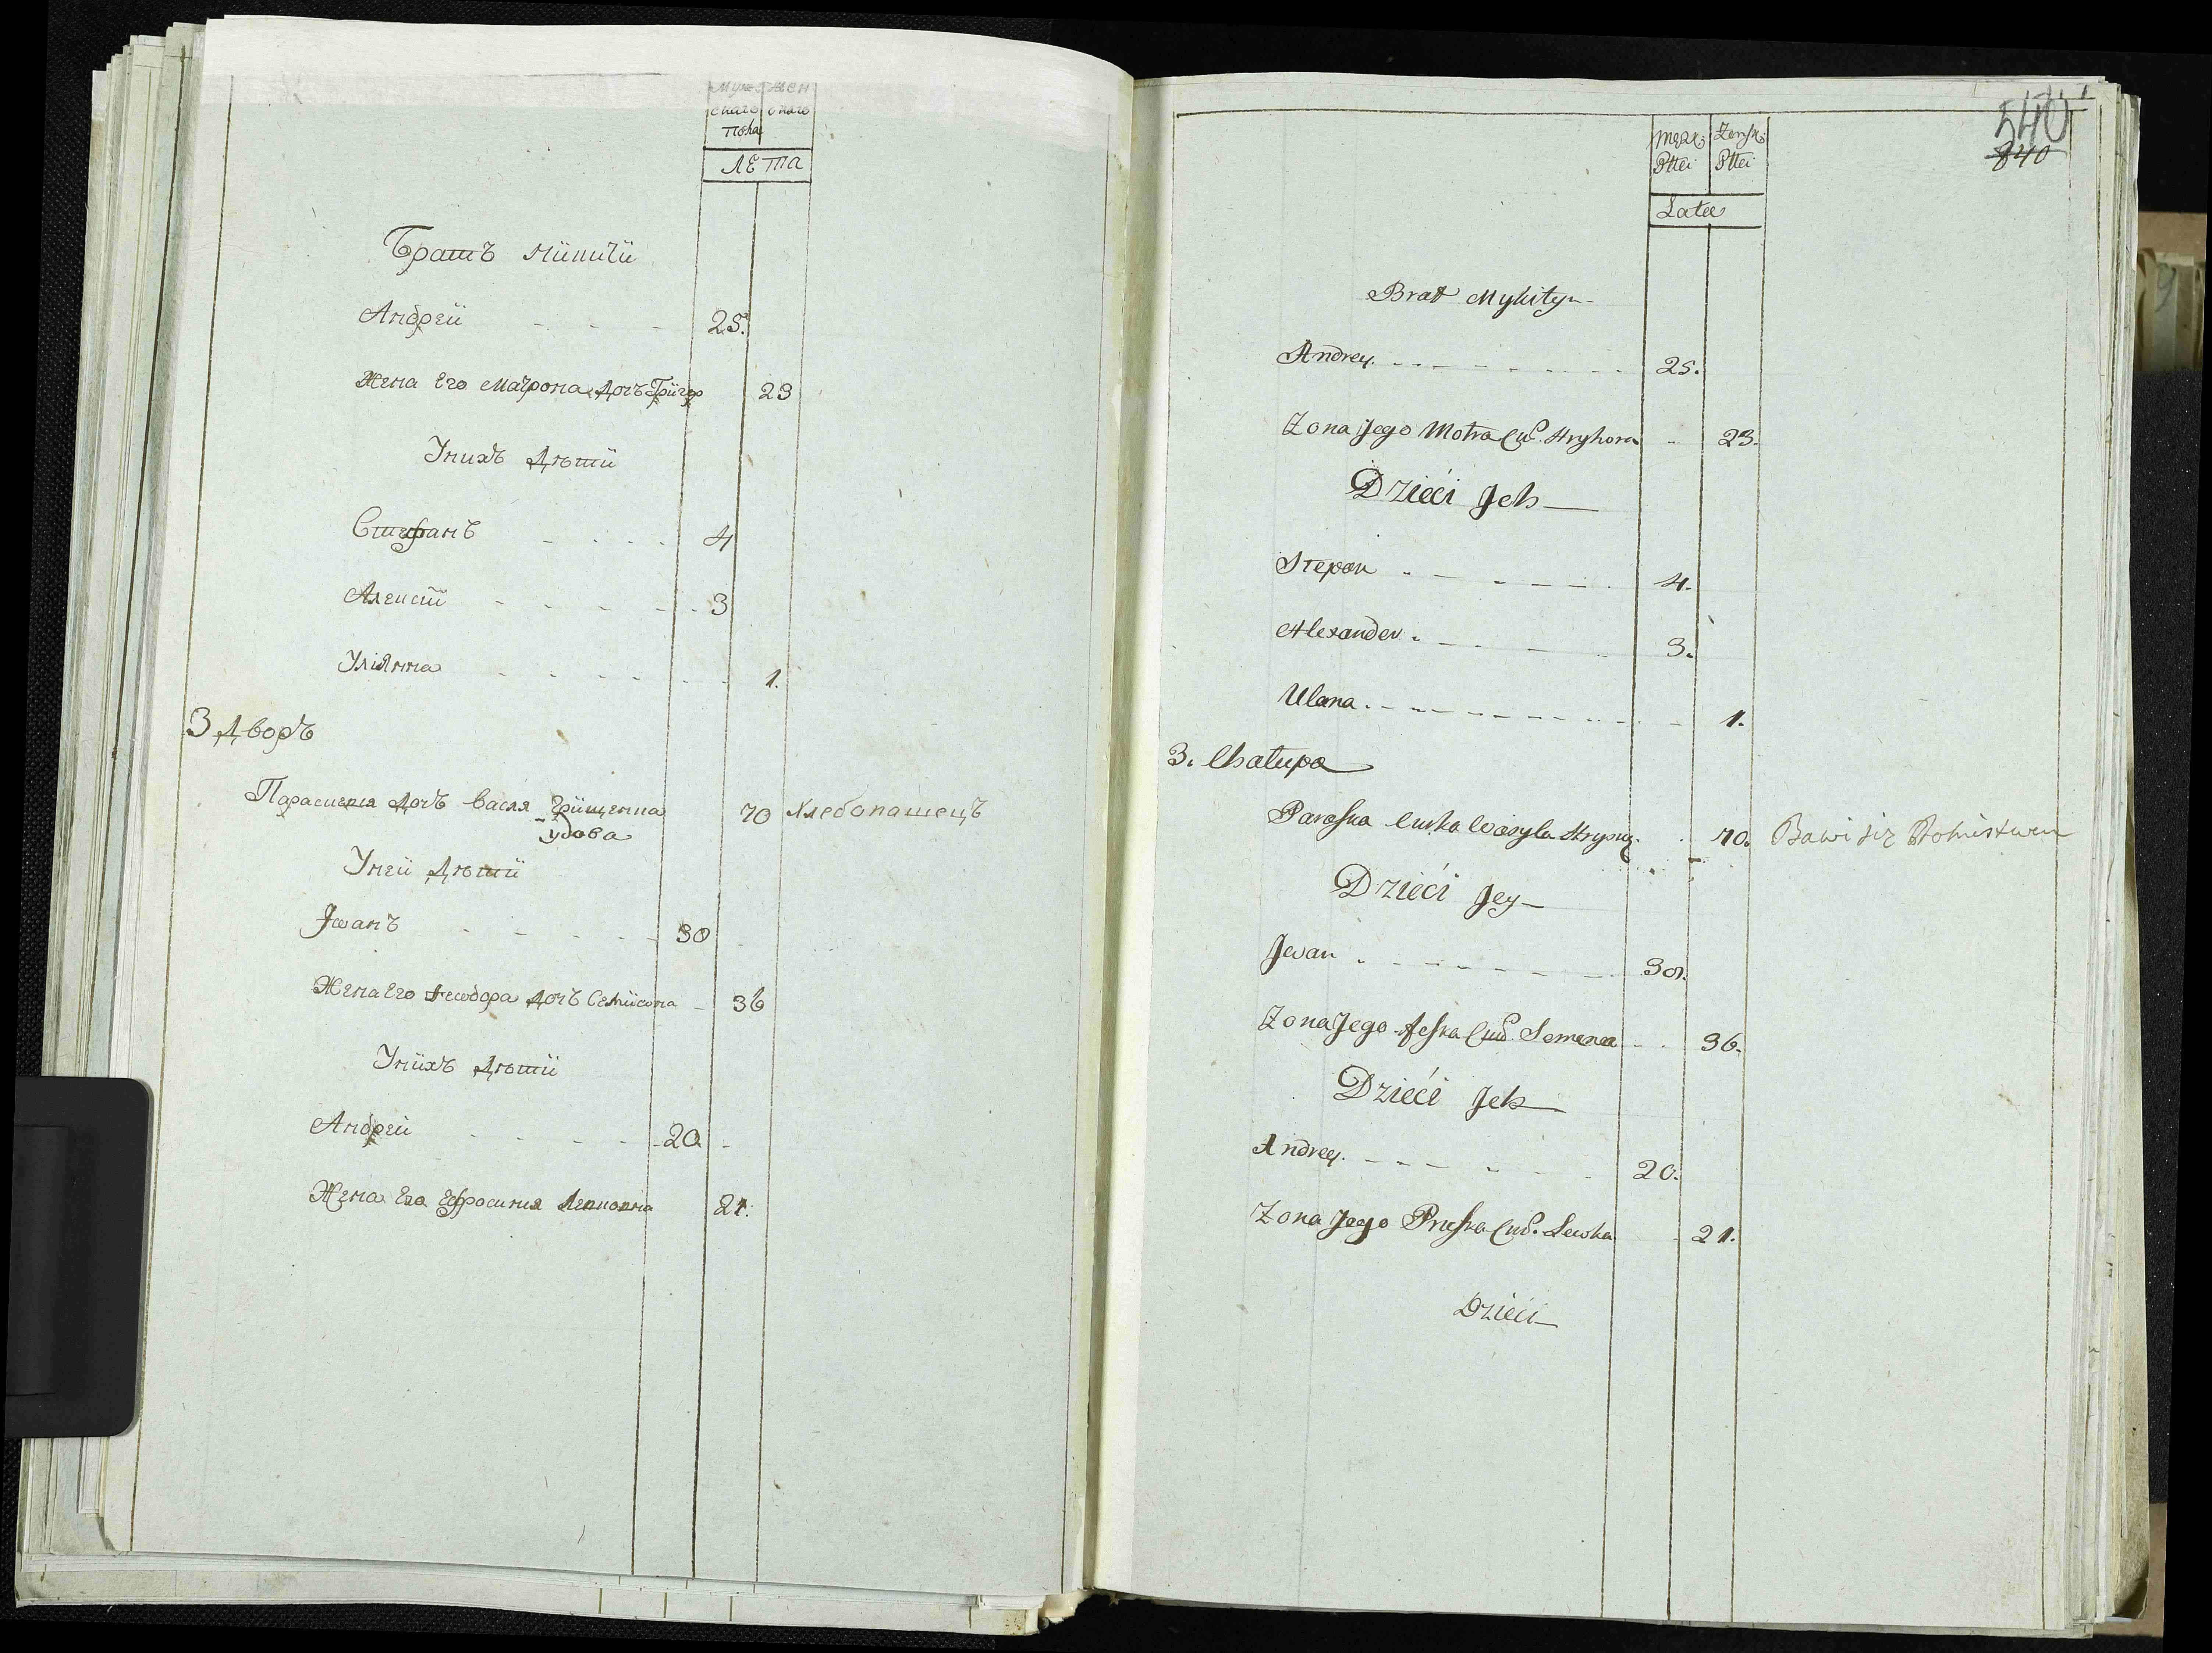 Муже Жен
скаго скаго
Пола
ЛЕта
Братъ Микиты
Андрей 25.
Жена Его Матрона дочъ Григор 23
Унихъ Дѣти
Стефанъ 4
Алексѣй 3
Улiянна 1.
3 Дворъ
Параскевия дочъ Васля Грищенка 70 Хлебопашецъ
удова
Уней Дѣти
Iванъ 30
Жена Его Феодора дочъ Семиона 36
Унихъ Дѣти
Андрей 20
Жена Его Ефросиния 21.
540
840
męzk: Żeńsk:
Płci Płci
Lata
Brat Mykityn
Andrey. 25.
Zona Jego Motra Cur. Hryhora 23.
Dzieci Jch
Stepan 4.
Alexander. 3.
Ulana. 1.
3. Chałupa
Paraska Curka Wasyla 70. Bawi się Rolnistwem
Dzieci Jey
Jwan 30.
Zona Jego Feska Cur. Semena 36.
Dzieci Jch
Andrey. 20.
Zona Jego Pruska Cur. Lewka 21.
Dzieci